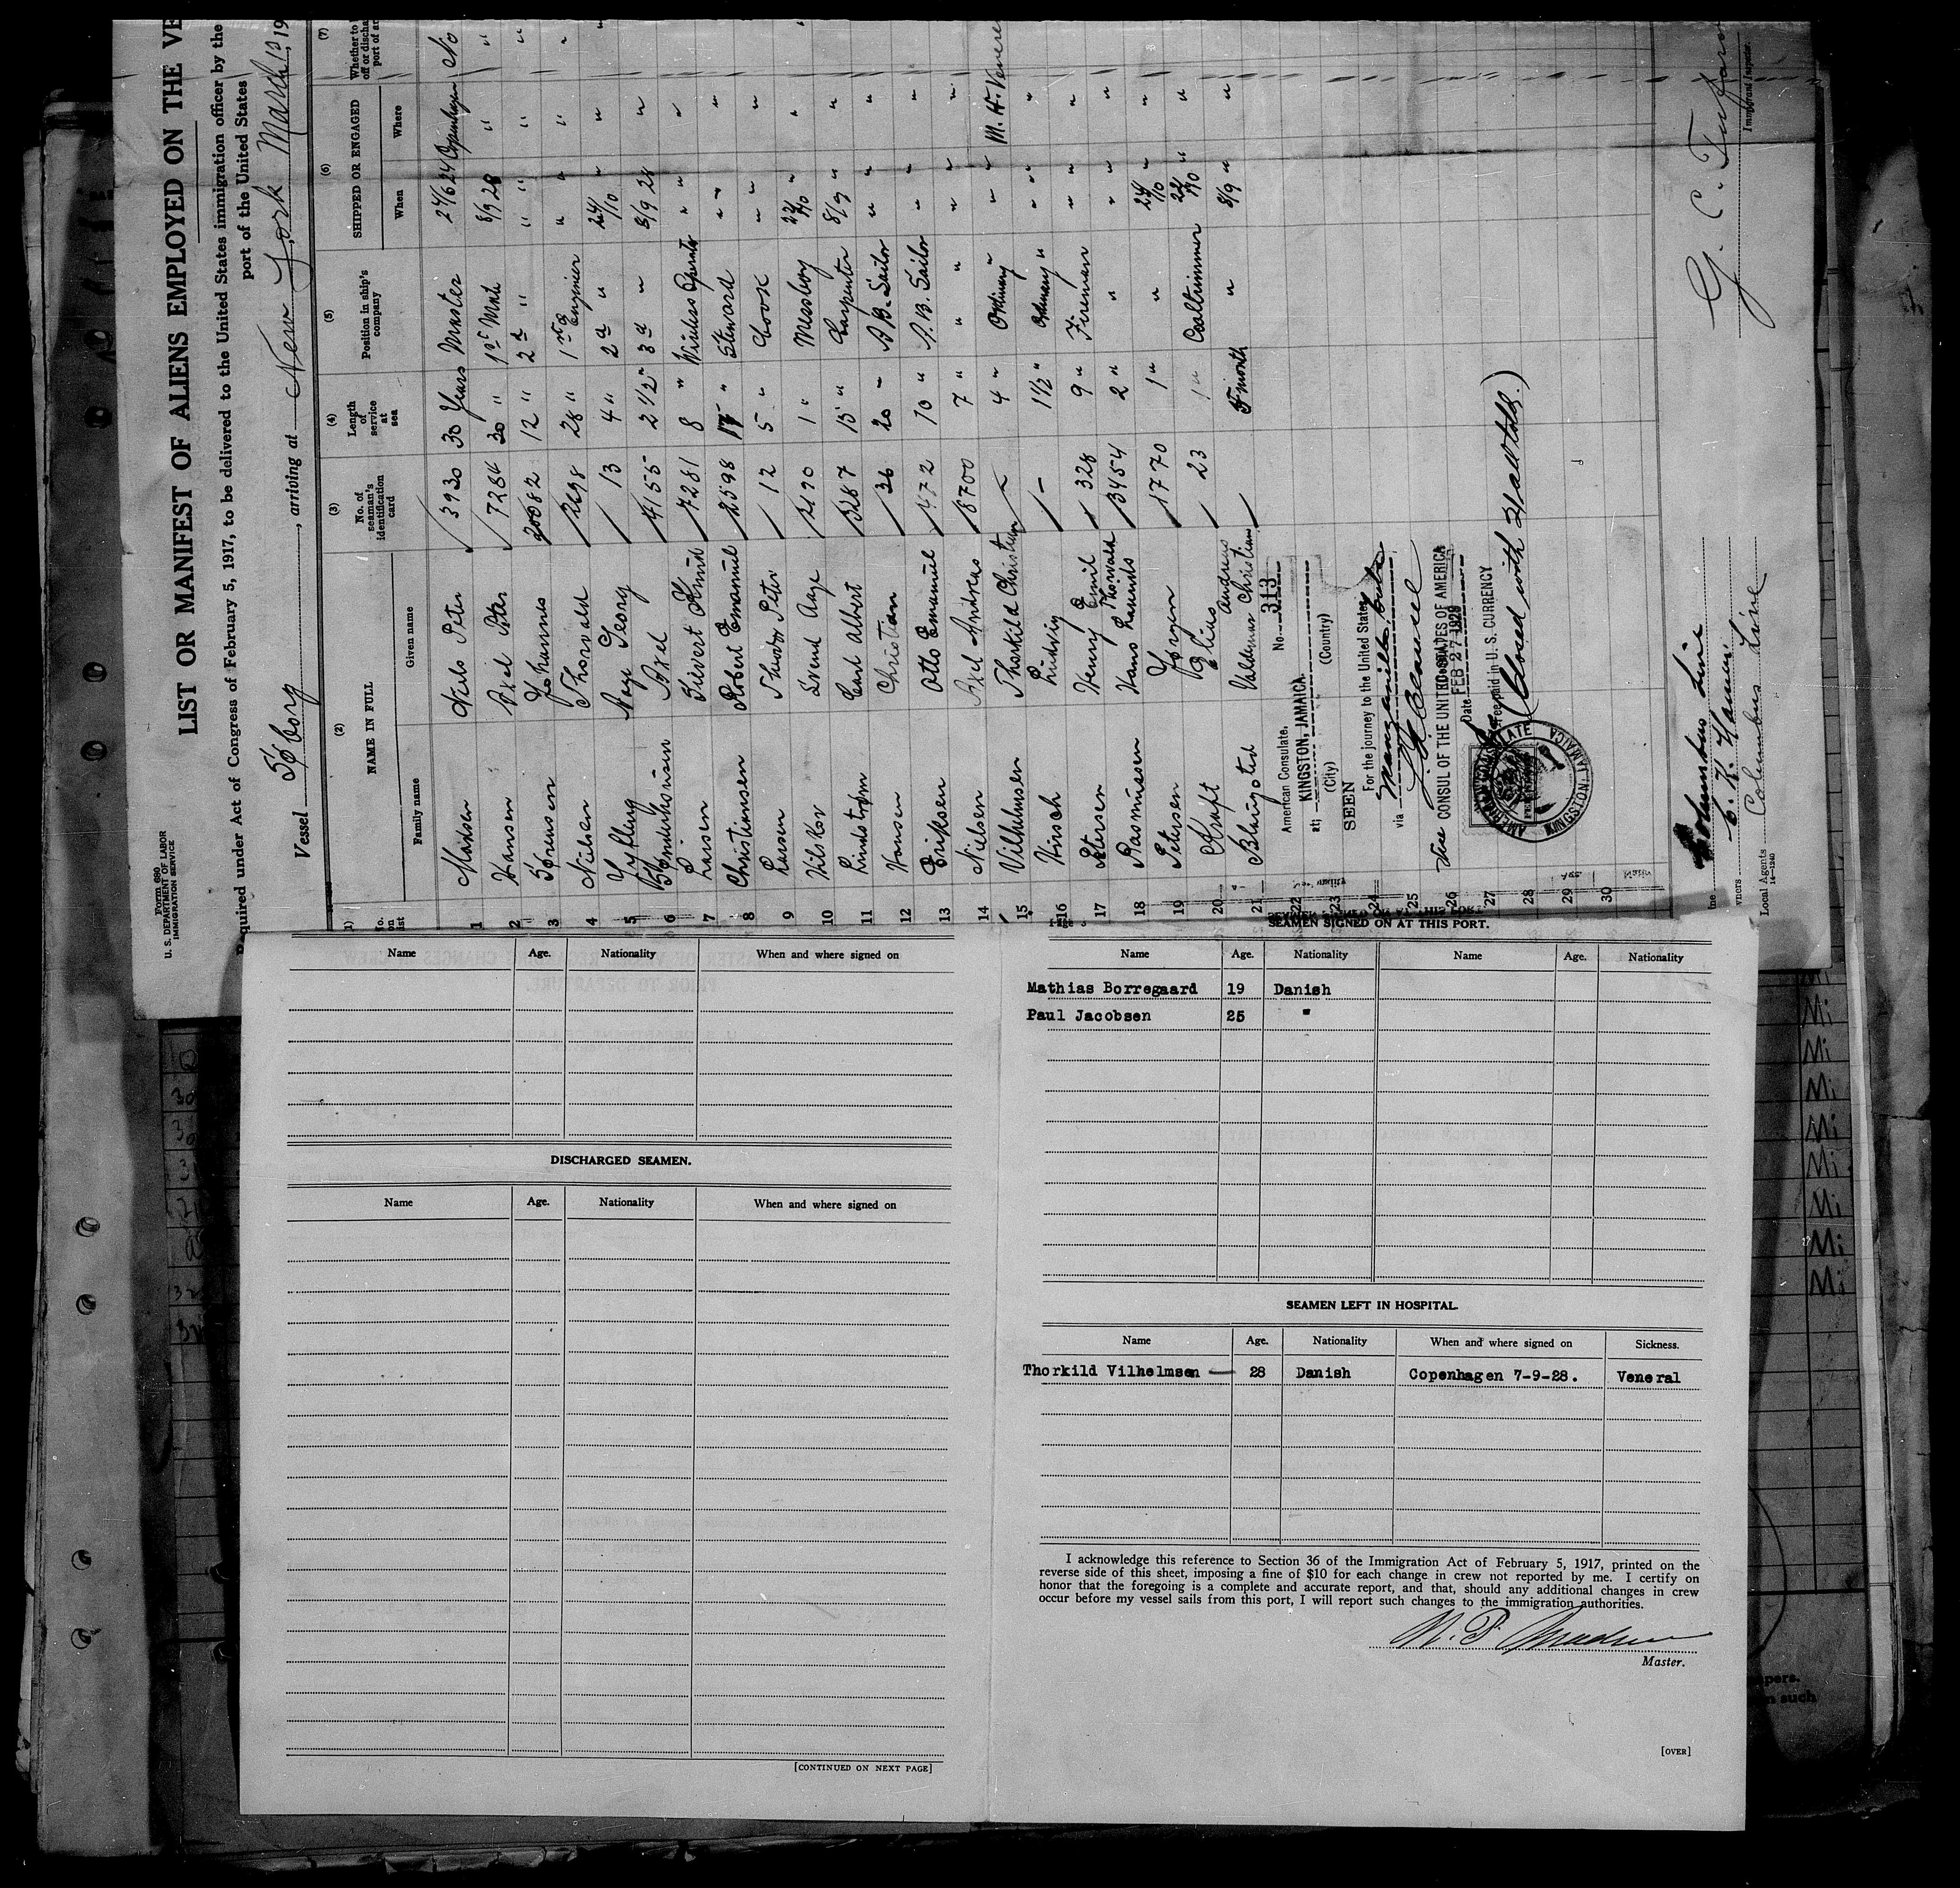 Form 680
U. S. DEPARTMENT OF LABOR
IMMIGRATION SERVICE
LIST OR MANIFEST OF ALIENS EMPLOYED ON THE VE
Required under Act of Congress of February 5, 1917, to be delivered to the United States immigration officer by the
port of the United States
Vessel , arriving at New York March 13, 19
(1) (2) (3) (4) (5) (6) (7)
No. on list NAME IN FULL No. of seaman's identification card Length of service at sea Position in ship's company SHIPPED OR ENGAGED Whether to
off or discha
port of ar
Family name Given name When Where
1 Madsen Niels Peter 3930 30 Years Master 24/6 24 Copenhagen No
2 Hansen Axel Peter 7284 30 " 1st Mate 8/9 28 " "
3 Sörensen Johannes 20082 12 " 2d " " " " "
4 Nielsen Thorvald 2698 28 " 1st Enginier " " "
5 Aage Georg 13 4 " 2d " 24/10 " "
6 Axel 4155 2 1/2 " 3d " 8/9 28 "
7 Larsen Sievert Knud 7281 8 " Wireless Operator " " "
8 Christiansen Robert Emanuel 2598 " Steward " " "
9 Larsen Theodor Peter 12 5 " Cook " " "
10 Vilskov Svend Aage 2190 1 " Messboy " "
11 Lindstrøm Carl Albert 3287 15 " Carpenter 8/9 " "
12 Hansen Christian 36 20 - A.B. Sailor " "
13 Eriksen Otto Emanuel 472 10 " A.B. Sailor " " "
14 Nielsen Axel Andreas 8700 7 " " " " "
15 Vilhelmsen Thorkild Christian - 4 " Ordinary " " " M. H. Venere
16 Hirsch Ludvig - 1 1/2 " Ordinary " " " "
17 Petersen Henry Emil 328 9 " Fireman " " "
18 Rasmussen Hans Lauritz Thorvald 3454 2 " " " " "
19 Petersen Jorgen 1770 1 " " 24/10 " "
20 Kruft Elius Andreas 23 1 " Coaltrimmer " "
21 Valdemar Christian month " 8/9 " "
22
23
24
25
26
27
28
29
30
American Consulate, No. 313
at KINGSTON, JAMAICA
(City) (Country)
SEEN
For the journey to the United States
via Manzanillo, Cuba
CONSUL OF THE UNITED STATES OF AMERICA
Date FEB 27 1929
Fee paid in U. S. CURRENCY
(Closed with 21 all told.)
KINGSTON, JAMAICA
Columbus Line
Local Agents Columbus Line
14—1240
Immigrant Inspector.
Name Age. Nationality When and where signed on
DISCHARGED SEAMEN.
Name Age. Nationality When and where signed on
[CONTINUED ON NEXT PAGE]
SEAMEN SIGNED ON AT THIS PORT.
Name Age. Nationality Name Age. Nationality
Mathias Borregaard 19 Danish
Paul Jacobsen 25 "
SEAMEN LEFT IN HOSPITAL.
Name Age. Nationality When and where signed on Sickness.
Thorkild Vilhelmsen — 28 Danish Copenhagen 7-9-28. Veneral
I acknowledge this reference to Section 36 of the Immigration Act of February 5, 1917, printed on the
reverse side of this sheet, imposing a fine of $10 for each change in crew not reported by me. I certify on
honor that the foregoing is a complete and accurate report, and that, should any additional changes in crew
occur before my vessel sails from this port, I will report such changes to the immigration authorities.
N. P. Madsen
Master.
[OVER]
Mi
Mi
Mi
Mi
Mi
Mi
Mi
Mi